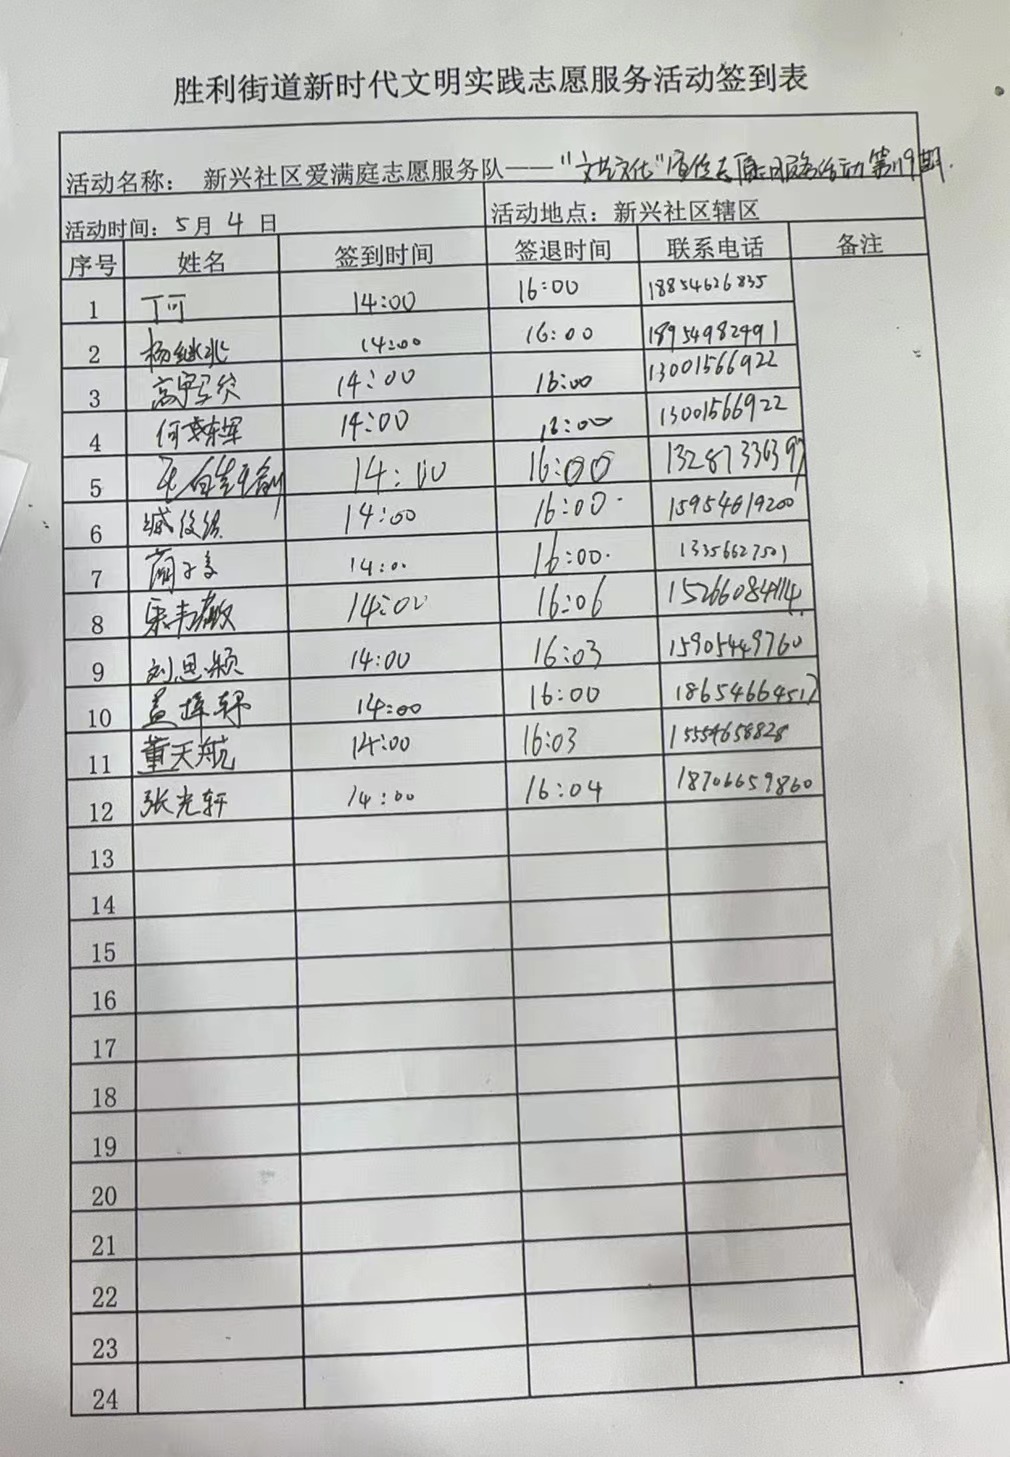 胜利街道新时代文明实践志愿服务活动签到表
活动名称： 新兴社区爱满庭志愿服务队——"文艺文化"宣传志愿服务活动第119期.
活动时间：5月4日 活动地点：新兴社区辖区
序号 姓名 签到时间 签退时间 联系电话 备注
1 丁可 14:00 16:00 18854626835
2 杨继兆 14:00 16:00 18954982491
3 14:00 16:00 13001566922
4 14:00 16:00 13001566922
5 14:00 16:00 13287336397
6 臧俊绩 14:00 16:00 15954619200
7 14:00 16:00 13356627501
8 14:00 16:06 15266084114
9 刘思颖 14:00 16:03 15905449760
10 14:00 16:00 18654664517
11 董天航 14:00 16:03 15554658828
12 张光轩 14:00 16:04 18706659860
13
14
15
16
17
18
19
20
21
22
23
24